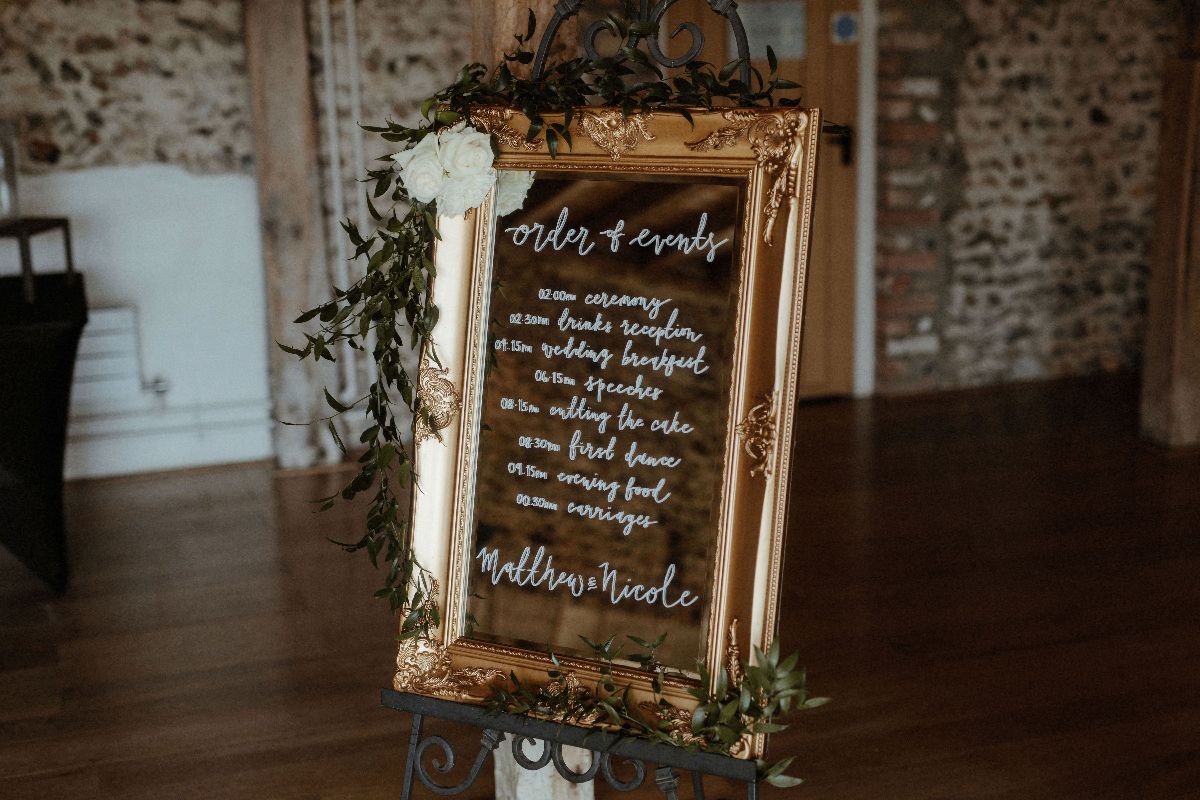 order of events
02:00pm ceremony
02:30pm drinks reception
04:15pm wedding breakfast
06:15pm speeches
08:15pm cutting the cake
08:30pm first dance
09:15pm evening food
00:30am carriages
Matthew & Nicole